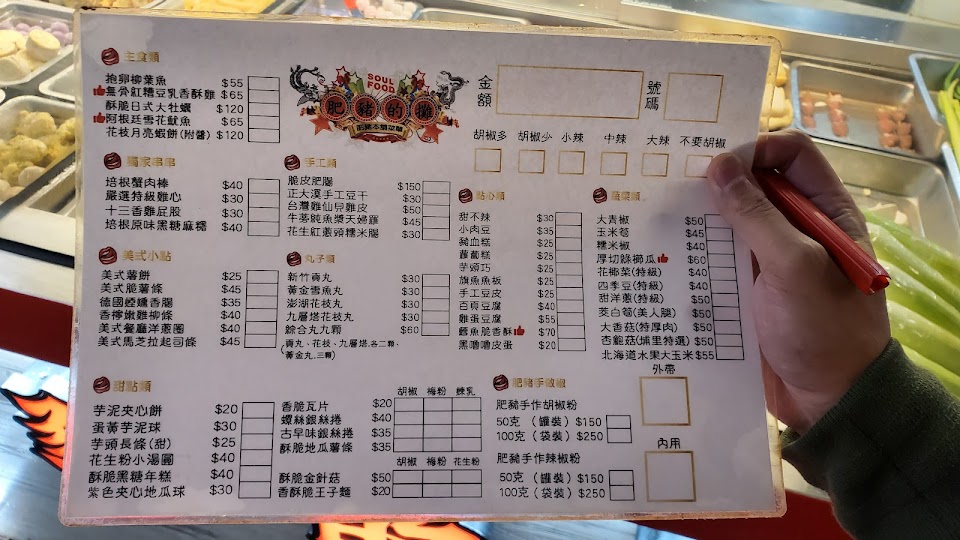 主食類
抱卵柳葉魚 $55
無骨紅糟豆乳香酥雞 $65
酥脆日式大牡蠣 $120
阿根廷雪花魷魚 $65
花枝月亮蝦餅(附醬) $120
SOUL FOOD
肥豬的攤
金額
號碼
胡椒多 胡椒少 小辣 中辣 大辣 不要胡椒
獨家串串
培根蟹肉棒 $40
嚴選特級雞心 $30
十三香雞屁股 $30
培根原味黑糖麻糬 $40
手工類
脆皮肥腸 $150
正大溪手工豆干 $30
台灣雞仙兒雞皮 $50
牛蒡魨魚漿天婦羅 $45
花生紅蔥頭糯米腸 $30
美式小點
美式薯餅 $25
美式脆薯條 $45
德國煙燻香腸 $35
香檸嫩雞柳條 $40
美式餐廳洋蔥圈 $40
美式馬芝拉起司條 $45
丸子類
新竹貢丸 $30
黃金雪魚丸 $30
澎湖花枝丸 $30
九層塔花枝丸 $30
綜合丸九顆 $60
(貢丸、花枝、九層塔,各二顆、
黃金丸,三顆)
點心類
甜不辣 $30
小肉豆 $35
豬血糕 $25
蘿蔔糕 $25
芋頭巧 $25
旗魚魚板 $25
手工豆皮 $25
百頁豆腐 $40
雞蛋豆腐 $55
鱈魚脆香酥 $70
黑嚕嚕皮蛋 $20
蔬菜類
大青椒 $50
玉米筍 $45
糯米椒 $40
厚切綠櫛瓜 $60
花椰菜(特級) $40
四季豆(特級) $40
甜洋蔥(特級) $50
茭白筍(美人腿) $50
大香菇(特厚肉) $50
杏鮑菇(埔里特選) $50
北海道水果大玉米 $55
甜點類
芋泥夾心餅 $20
蛋黃芋泥球 $30
芋頭長條(甜) $25
花生粉小湯圓 $40
酥脆黑糖年糕 $40
紫色夾心地瓜球 $30
胡椒 梅粉 煉乳
香脆瓦片 $20
螺絲銀絲捲 $40
古早味銀絲捲 $35
酥脆地瓜薯條 $35
胡椒 梅粉 花生粉
酥脆金針菇 $50
香酥脆王子麵 $20
肥豬手做椒
肥豬手作胡椒粉
50克 (罐裝) $150
100克 (袋裝) $250
肥豬手作辣椒粉
50克 (罐裝) $150
100克 (袋裝) $250
外帶
內用